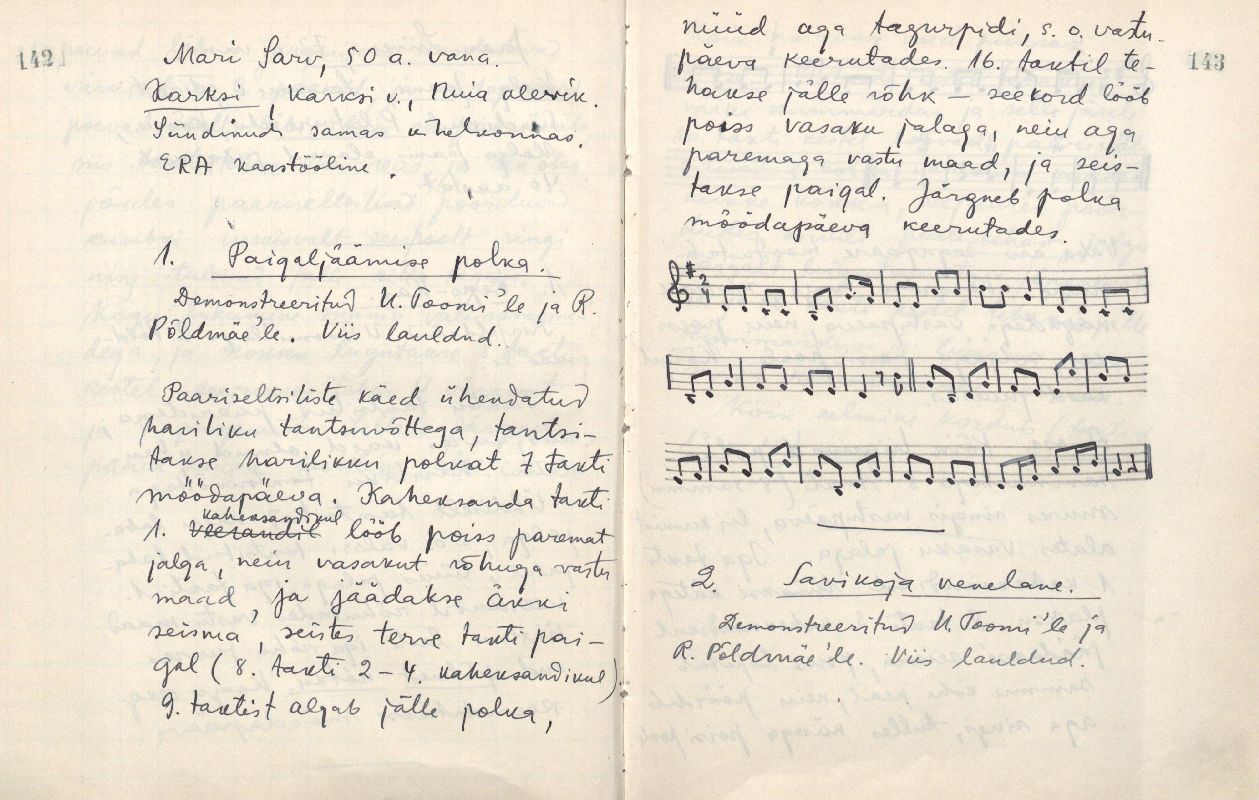 142
Mari Sarv, 50 a. vana.
Karksi, Karksi v., Nuia alevik.
Sündinud samas kihelkonnas.
ERA kaastööline.
1. Paigaljäämise polka.
Demonstreeritud U. Toomi'le ja R.
Põldmäe'le. Viis lauldud.
Paariseltsiliste käed ühendatud
hariliku tantsuvõttega, tantsi-
takse harilikku polkat 7 takti
möödapäeva. Kaheksanda takti
kaheksandikul
1. veerandil lööb poiss paremat
jalga, neiu vasakut rõhuga vastu
maad, ja jäädakse äkki
seisma, seistes terve takti pai-
gal (8. takti 2-4. kaheksandikul).
9. taktist algab jälle polka,
143
nüüd aga tagurpidi, s. o. vastu-
päeva keerutades. 16. taktil te-
hakse jälle rõhk – seekord lööb
poiss vasaku jalaga, neiu aga
paremaga vastu maad, ja seis-
takse paigal. Järgneb polka
möödapäeva keerutades.
2/4
2. Savikoja venelane.
Demonstreeritud U. Toomi'le ja
R. Põldmäe'le. Viis lauldud.